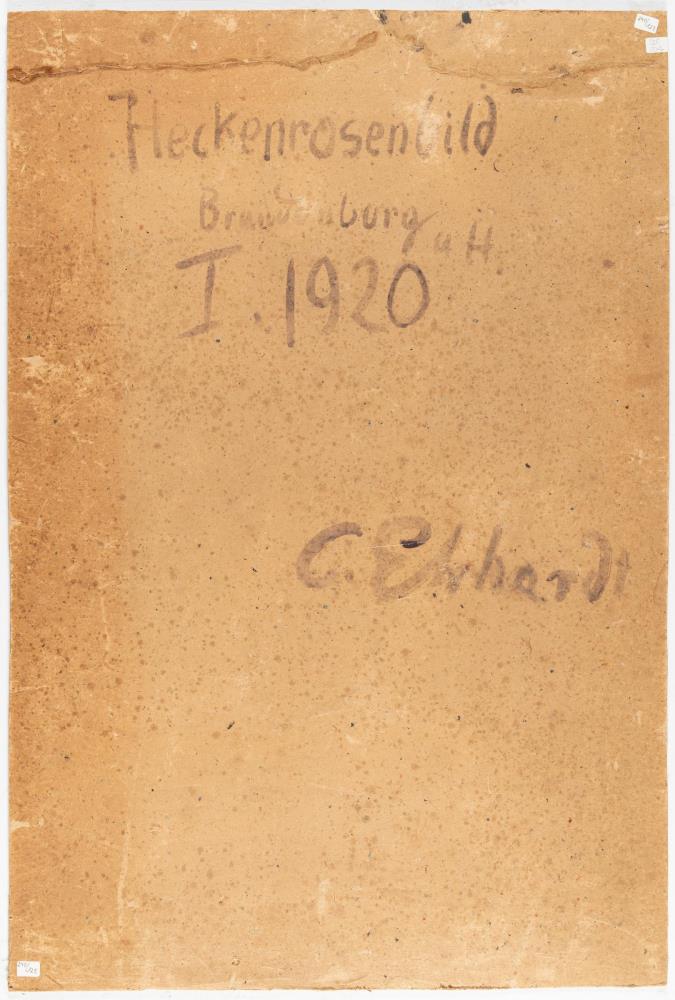 Heckenrosenbild
Brandenburg a H.
I. 1920
C. Ehrhardt